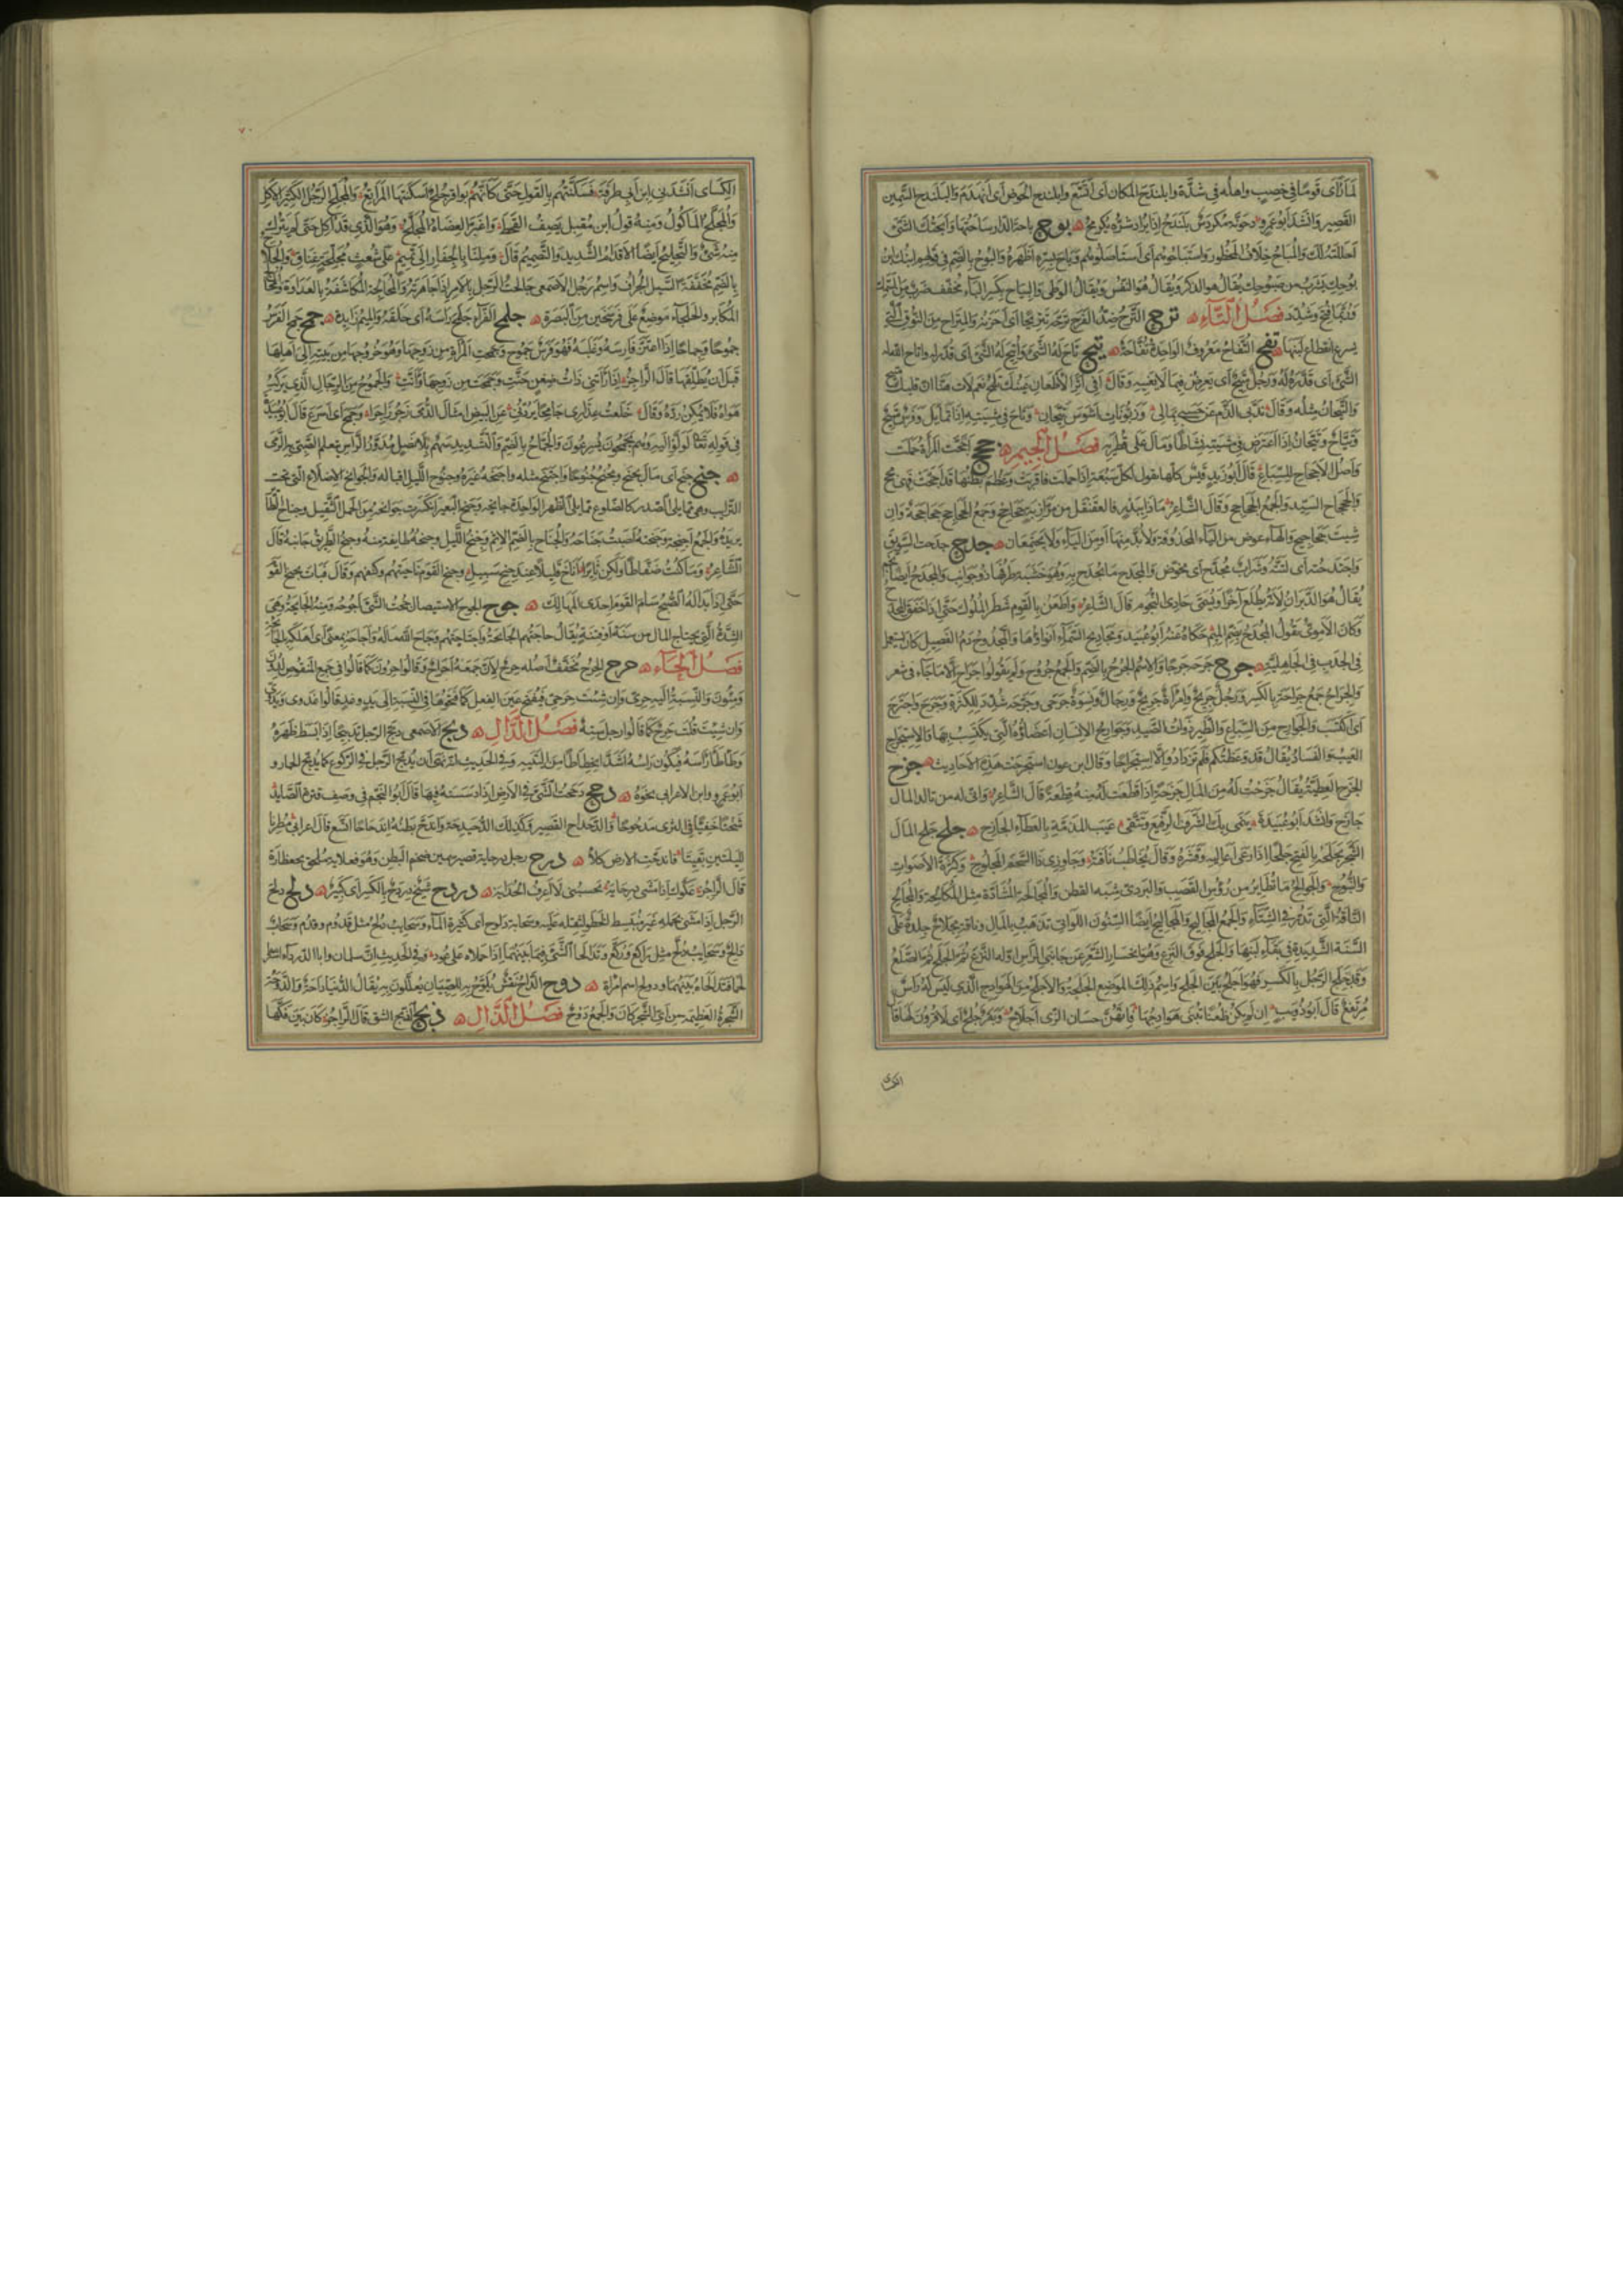 لما رأى قومًا في خصب واهله في شدة وابلندح المكان اى اتسع وابلندح الحوض اى انهدم والبلندح السمين
القصير وانشد ابو عمرو دحونة مكردس بلندح اذا يراد شده يكرمح بوح باحة الدار ساحتها وابحتك الشئ
احللته لك والمباح خلاف المحظور واستباحوهم اى استاصلوهم وباح بسره اظهره والبوح بالضم في قولهم ابنك ابن
بوحك يشرب من صبوحك يقال هو الذكر ويقال هو النفس ويقال الوطى والبياح بكسر الباء مخفف ضرب من السمك
وربما فتح وشدد فصل التاء ترح الترح ضد الفرح ترحه تتريحا اى احزنه والمتراح من النوق التى
يسرع انقطاع لبنها تفح التفاح معروف الواحدة تفاحة تيح تاح له الشئ واتيح له الشئ اى قدر له واتاح الله له
الشئ اى قدره له ورجل متيح اى يعرض فيما لا يعنيه وقال افي اثر الاظعان عينك تلمح نعم لات هنا ان قلبك متيح
والتيحان مثله وقال بذبى الذم عن حسبى بمالى وزبونات اشوس تيحان وتاح في مشيته اذا تمايل وفرس متيح
وتياح وتيحان اذا اعترض في مشيته نشاطا ومال على قطريه فصل الجيم جحح اجحت المراة حملت
واصل الاجحاح للسباع قال ابو زيد قيس كلها تقول لكل سبعة اذا حملت فاقربت وعظم بطنها قد اجحت فهى مجح
والجحجاح السيد والجمع الجحاجح وقال الشاعر ماذا ببدر فالعقنقل من مرازبة جحاجح وجمع الجحاجح جحاجحة وان
شيت جحاجيح والهاء عوض من الياء المحذوفة ولا بد منها او من الياء ولا يجتمعان جدح جدحت السويق
واجتدحته اى لتته وشراب مجدح اى مخوض والمجدح ما يجدح به وهو خشبة طرفها ذو جوانب والمجدح ايضا نجم
يقال هو الدبران لانه يطلع آخرا ويسمى حادى النجوم قال الشاعر واطعن بالقوم شطر الملوك حتى اذا خفق المجدح
وكان الاموى يقول المجدح بضم الميم حكاه عنه ابو عبيد ومجاديح السماء انواؤها والمجدوح دم الفصيد كان يستعمل
في الجدب في الجاهلية جرح جرحه جرحا والاسم الجرح بالضم والجمع جروح ولم يقولوا اجراح الا ما جاء في شعر
والجراح جمع جراحة بالكسر ورجل جريح وامراة جريح ورجال ونسوة جرحى وجرحه شدد للكثرة وجرح واجترح
اى اكتسب والجوارح من السباع والطير ذوات الصيد وجوارح الانسان اعضاؤه التى يكتسب بها والاستجراح
العيب والفساد يقال قد وعظتكم فلم تزدادوا الا استجراحا وقال ابن عون استجرحت هذه الاحاديث جزح
الجزح العطية يقال جزحت له من المال جزحة اذا قطعت له منه قطعة قال الشاعر وانى له من تالد المال
جازح وانشد ابو عبيدة ينمى بك الشرف الرفيع وتتقى عيب المذمة بالعطاء الجازح جلح جلح المال
الشجر يجلحه بالفتح جلحا اذا رعى اعاليه وقشره وقال يخاطب ناقته وجاوزى ذا السحم المجلوح وكثرة الاصوات
والنبوح والجوالح ما تطاير من رؤس القصب والبردى شبه القطن والمجالحة المشادة مثل المكالحة والمجالح
الناقة التى تدر في الشتاء والجمع المجاليح والمجاليح ايضا السنون اللواتى تذهب بالمال وناقة مجلاح جلدة على
السنة الشديدة في بقاء لبنها والجلح فوق النزع وهو انحسار الشعر عن جانبى الراس اوله النزع ثم الجلح ثم الصلع
وقد جلح الرجل بالكسر فهو اجلح بين الجلح واسم ذلك الموضع الجلحة والاجلح من الهوادج الذى ليس له راس
مرتفع قال ابو ذويب ان لم يكن ظعنا تبنى هوادجها فانهن حسان الزى اجلاح وبقر جلح اى لا قرون لها قال
الكسائى
الكسائى انشدنى ابن ابى طرفة فسكنتهم بالقول حتى كانهم بواقر جلح اسكنتها المراتع والمجلح الرجل الكثير الاكل
والمجلح الماكول ومنه قول ابن مقبل يصف القحط اذا اغبر العضاه المجلح وهو الذى قد اكل حتى لم يترك
منه شئ والتجليح ايضا الاقدام الشديد والتصميم قال وملنا بالجفار الى تميم على شعث مجلحة عتاق والجلاح
بالضم مخففة السيل الجراف واسم رجل الاصمعى جالحت الرجل بالامر اذا جاهرته والمجالحة المكاشفة بالعداوة والمجالح
المكابر والجلحاء موضع على فرسخين من البصرة جلمح الفراء جلمح راسه اى حلقه والميم زايدة جمح جمح الفرس
جموحا وجماحا اذا اعتز فارسه وغلبه فهو فرس جموح وجمحت المراة من زوجها وهو خروجها من بيته الى اهلها
قبل ان يطلقها قال الراجز اذا راتنى ذات ضغن حنت وجمحت من زوجها وانت والجموح من الرجال الذى يركب
هواه فلا يمكن رده وقال خلعت عذارى جامحا ما يردنى عن البيض امثال الدمى زجر زاجر وجمح اى اسرع قال ابو عبيدة
في قوله تعالى لولوا اليه وهم يجمحون يسرعون والجماح بالضم والتشديد سهم بلا نصل مدور الراس يتعلم الصبى به الرمى
جنح جنح اى مال يجنح ويجنح جنوحا واجتنح مثله واجنحه غيره وجنوح الليل اقباله والجوانح الاضلاع التى تحت
الترايب وهى مما يلى الصدر كالضلوع مما يلى الظهر الواحدة جانحة وجنح البعير انكسرت جوانحه من الحمل الثقيل وجناح الطاير
يده والجمع اجنحة وجنحته اصبت جناحه والجناح بالضم الاثم وجنح الليل وجنحه طايفة منه وجنح الطريق جانبه قال
الشاعر وما كنت ضغاطا ولكن ثايرا اناخ قليلا عند جنح سبيل وجنح القوم ناحيتهم وكنفهم وقال فبات بجنح القوم
حتى اذا بدا له الصبح سام القوم احدى المهالك جوح الجوح الاستيصال جحت الشئ اجوحه ومنه الجايحة وهى
الشدة التى تجتاح المال من سنة او فتنة يقال جاحتهم الجايحة واجتاحتهم وجاح الله ماله واجاحه بمعنى اى اهلكه بالجايحة
فصل الحاء حرح الحر مخفف اصله حرح لان جمعه احراح وقالوا حرون كما قالوا في جمع المنقوص لدون
ومئون والنسبة اليه حرى وان شئت حرحى فتفتح عين الفعل كما فتحوها في النسبة الى يد وغد قالوا غدوى ويدوى
وان شيت قلت حرح كما قالوا رجل سته فصل الدال دبح الاصمعى دبح الرجل تدبيحا اذا بسط ظهره
وطاطا راسه فيكون راسه اشد انحطاطا من اليتيه وفي الحديث انه نهى ان يدبح الرجل في الركوع كما يدبح الحمار و
ابو عمرو وابن الاعرابى نحوه دحح دححت الشئ في الارض اذا دسسته فيها قال ابو النجم في وصف قترة الصايد
بيتا خفيا في الثرى مدحوحا والدحداح القصير وكذلك الدحيدحة واندح بطنه اندحاحا اتسع قال اعرابى مطرنا
لليلتين بقيتا فاندحت الارض كلأ درح رجل درحاية قصير سمين ضخم البطن وهو فعلاية ملحق بجعظارة
قال الراجز عكوك اذا مشى درحاية تحسبنى لا اعرف الحداية دردح شيخ دردح بالكسر اى كبير دلح دلح
الرجل اذا مشى بحمله غير منبسط الخطو لثقله عليه وسحابة دلوح اى كثيرة الماء وسحايب دلح مثل قدوم وقدم وسحاب
دالح وسحايب دلح مثل راكع وركع وتدالحا الشئ فيما بينهما اذا حملاه على عود وفي الحديث ان سلمان وابا الدرداء اشتريا
لحما فتدالحاه بينهما ودولح اسم امراة دوح الداح نقش يلوح به للصبيان يعللون به يقال الدنيا داحة والدوحة
الشجرة العظيمة من اى الشجر كان والجمع دوح فصل الذال ذبح الذبح الشق قال الراجز كان بين فكها